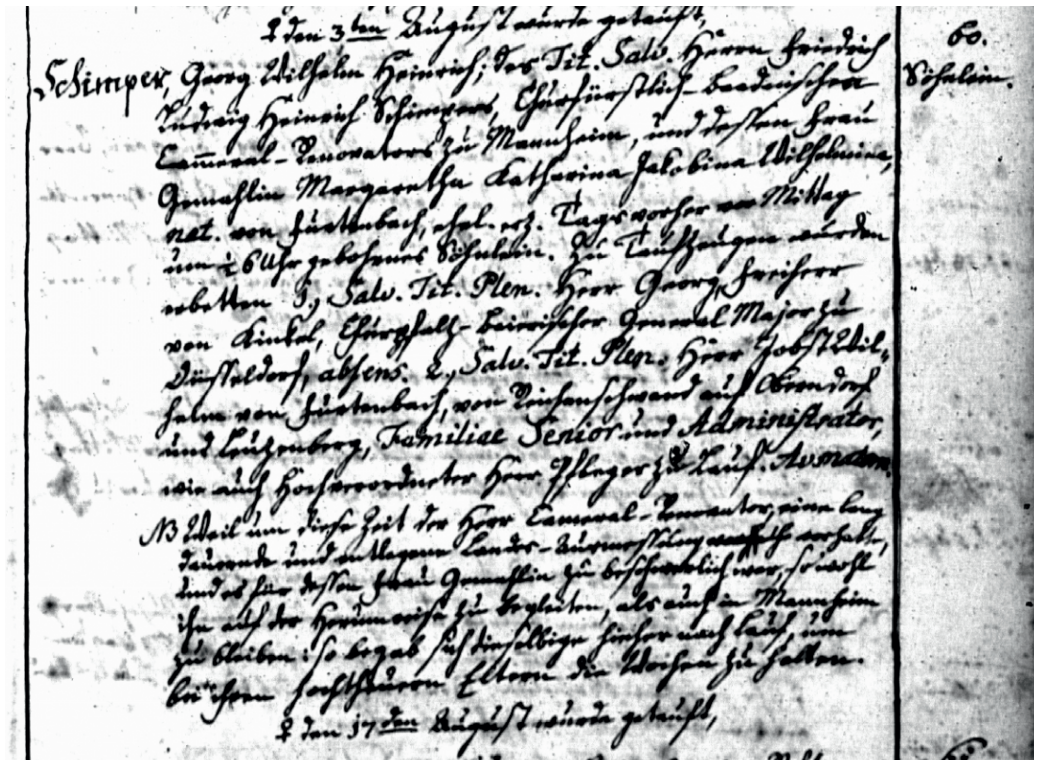 ♀ den 3ten August wurde getauft,
60.
Schimper, Georg Wilhelm Heinrich; des Tit. Salv. Herrn Friedrich
Söhnlein.
Ludwig Heinrich Schimpers, Churfürstlich-baadnischen
Cam̄eral-Renovators zu Mannheim, und dessen Frau
Gemahlin Margaretha Katharina Jakobina Wilhelmina,
nat. von Furtenbach, ehel. erz. Tags vorher vor Mittag
um 6 Uhr gebohrnes Söhnlein. Zu Taufzeugen wurden
erbetten 1., Salv. Tit. Plen. Herr Georg, Freiherr
von Kinkel, Churpfalz-baierischer General Major zu
Düsseldorf, absens. 2., Salv. Tit. Plen. Herr Jobst Wil-
helm von Furtenbach, von Reichenschwand auf Oberndorf
und Leuzenberg, Familiae Senior und Administrator,
wie auch Hochverordneter Herr Pfleger zu Lauf.
NB Weil um diese Zeit der Herr Cameral-Renovator, eine lang
daurende und entlegene Landes-Ausmessung vorhatte,
und es für dessen Frau Gemahlin zu beschwerlich war, so wohl
ihn auf der Herumreise zu begleiten, als auch in Mannheim
zu bleiben: so begab sich dieselbige hieher nach Lauf, um
bei ihren hochtheuern Eltern die Wochen zu halten.
♀ den 17den August wurde getauft,